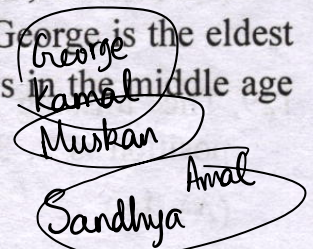 George is the eldest
George
s in the middle age
Kamal
Muskan
Amal
Sandhya